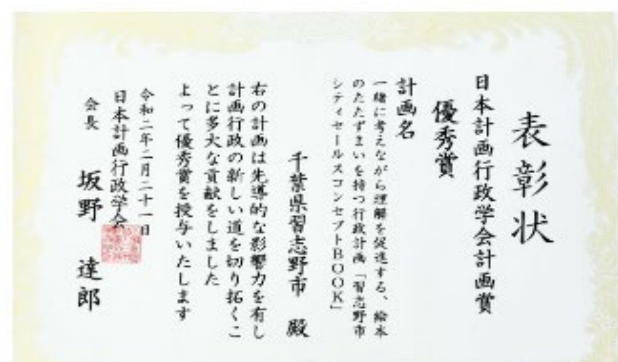 表彰状
日本計画行政学会計画賞
優秀賞
計画名
一緒に考えながら理解を促進する、絵本
のたたずまいを持つ行政計画「習志野市
シティセールスコンセプトBOOK」
千葉県習志野市 殿
右の計画は先導的な影響力を有し
計画行政の新しい道を切り拓くこ
とに多大な貢献をしました
よって優秀賞を授与いたします
令和二年二月二十一日
日本計画行政学会
会長 坂野 達郎